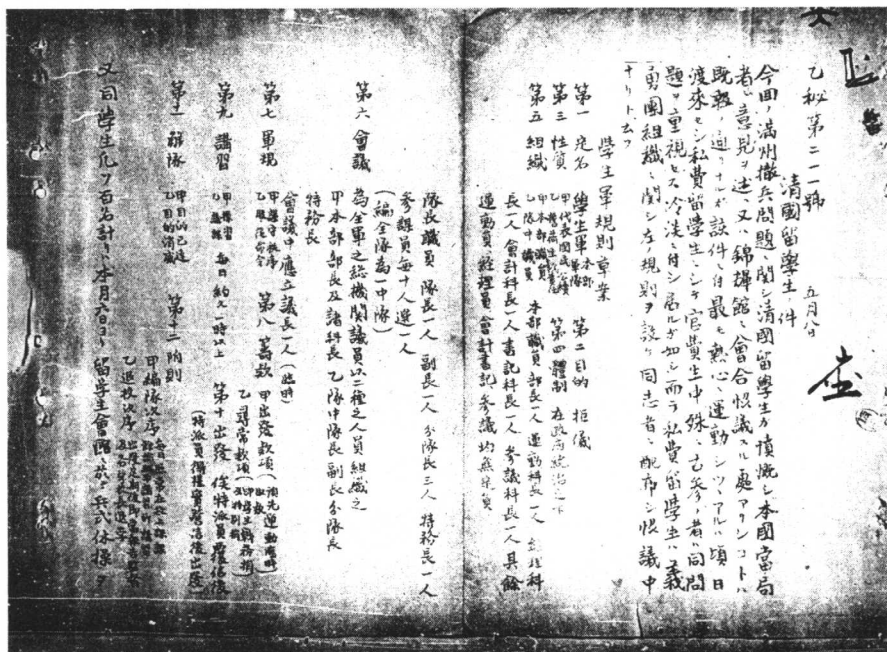 乙秘第二一一號 五月八日
清國留學生ノ件
今回ノ滿州撤兵問題ニ関シ清國留學生ガ憤慨シ本國當局
者ニ意見ヲ述ヘ又ハ錦輝館ニ會合恨議スル處アリシコトハ
既報ノ通リナルガ該件ニ付最モ熱心ニ運動シツヽアルハ頃日
渡來セシ私費留學生ニシテ官費生中殊ニ古參ノ者ハ同問
題ヲ重視セス冷淡ニ付シ居ルガ如シ而テ私費留學生ハ義
勇團組織ニ関シ左ノ規則ヲ設ケ同志者ニ配布シ恨議中
ナリト云フ
學生軍規則草案
第一 定名 學生軍 本部 軍隊 第二目的 拒俄
第三 性質 甲代表國民公憤 第四 體制 在政府統治之下
第五 組織 甲本部職員 乙隊中職員 本部職員 部長一人 運動科長一人 經理科
長一人 會計科長一人 書記科長一人 參議科長一人 其餘
運動員 經理員 會計 書記 參議均無定員
隊長職員 隊長一人 副長一人 分隊長三人 特務長一人
參謀員每十人選一人
(編全隊為一中隊)
第六 會議 為全軍之總機関議員以二種之人員組織之
甲本部部長及諸科長 乙隊中隊長 副長 分隊長
特務長
會議中應立議長一人(臨時)
第七 軍規 甲謹守秩序 乙服從命令 第八 籌款 甲出發款項(預先運動處時
乙尋常款項
第九 講習 甲學習 每日約文一時以上 第十 出發 俟特派員覆信後
(特派員偶擇實發信後出發)
第十一 解隊 甲目的已達 乙目的消滅 第十二 附則
甲編隊次序
乙退校次序
又同學生凡ソ百名計ハ本月六日ヨリ留學生會館ニ於テ兵式体操ヲ